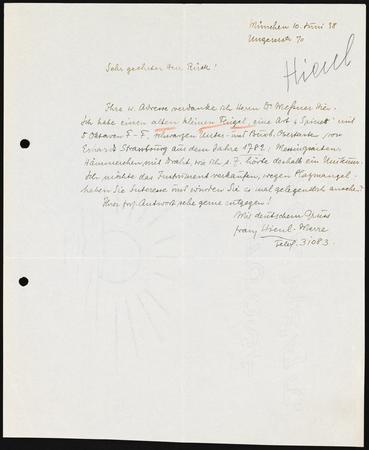 München 10. Juni 38
Ungererstr. 70
Hienl
Sehr geehrter Herr Rück!
Ihre w. Adresse verdanke ich Herrn Dr. Meßner hier.
Ich habe einen alten kleinen Flügel, eine Art "Spinett" mit
5 Oktaven F-F, schwarzen Unter- und Buxb. Obertasten von
Erhard Strassburg aus dem Jahre 1782. Messingsaiten
Hämmerchen mit Draht, wie ich s. Z. hörte deshalb ein Unikum.
Ich möchte das Instrument verkaufen, wegen Platzmangel.
haben Sie Interesse und würden Sie es mal gelegentlich ansehen?
Ihrer frdl. Antwort sehe gerne entgegen!
Mit deutschem Gruss
Franz Hienl-Merre
Telef. 31083.